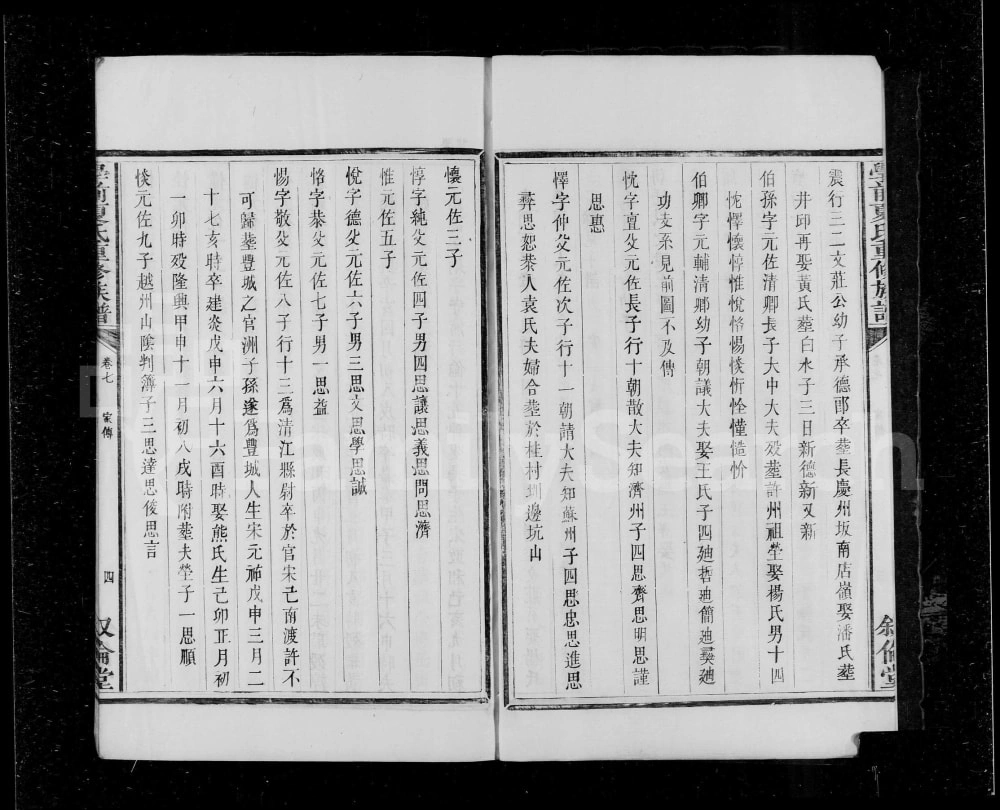 震行三二文莊公幼子承德郎卒塟長慶州坂南店嶺娶潘氏塟
井邱再娶黃氏塟白水子三日新德新又新
伯孫字元佐清卿長子大中大夫殁塟許州祖塋娶楊氏男十四
忱懌懷惇惟悅恪惕惔忻恮懂慥忦
伯卿字元輔清卿幼子朝議大夫娶王氏子四廸哲廸簡廸彞廸
功支系見前圖不及傳
忱字亶父元佐長子行十朝散大夫知濟州子四思齊思明思謹
思惠
懌字仲父元佐次子行十一朝請大夫知蘇州子四思忠思進思
彞思恕恭人袁氏夫婦合塟於桂村圳邊坑山
懷元佐三子
惇字純父元佐四子男四思讓思義思問思濟
惟元佐五子
悅字德父元佐六子男三思文思學思誠
恪字恭父元佐七子男一思益
惕字敬父元佐八子行十三為清江縣尉卒於官宋已南渡許不
可歸塟豐城之官洲子孫遂為豐城人生宋元祐戊申三月二
十七亥時卒建炎戊申六月十六酉時娶熊氏生己卯正月初
一卯時殁隆興甲申十一月初八戌時附塟夫塋子一思順
惔元佐九子越州山陰判簿子三思達思俊思言
前夏氏重修族譜
卷七
家傳
四
敘倫堂